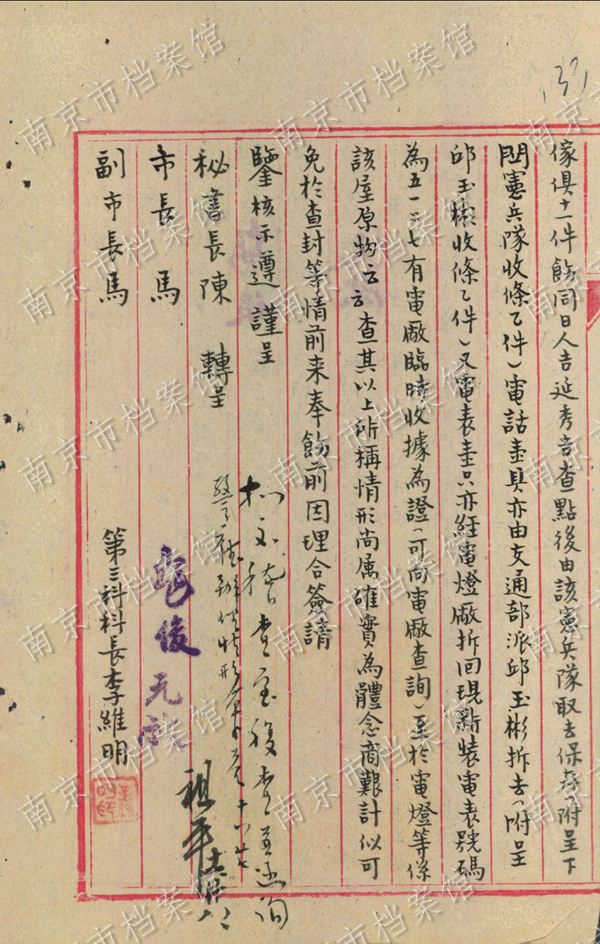 傢俱十一件飭同日人吉延秀吉查點後由該憲兵隊取去保存（附呈下
關憲兵隊收條乙件）電話壹具亦由交通部派邱玉彬拆去（附呈
邱玉彬收條乙件）又電表壹只亦經電燈廠拆回現新裝電表號碼
為五一二七有電廠臨時收據為證（可向電廠查詢）至於電燈等係
該屋原物云云查其以上所稱情形尚属確實為體念商艱計似可
免於查封等情前来奉飭前因理合簽請
鑒核示遵謹呈
秘書長陳 轉呈
市長馬
副市長馬
第三科科長李維明
俊元
祖平
南京市档案馆